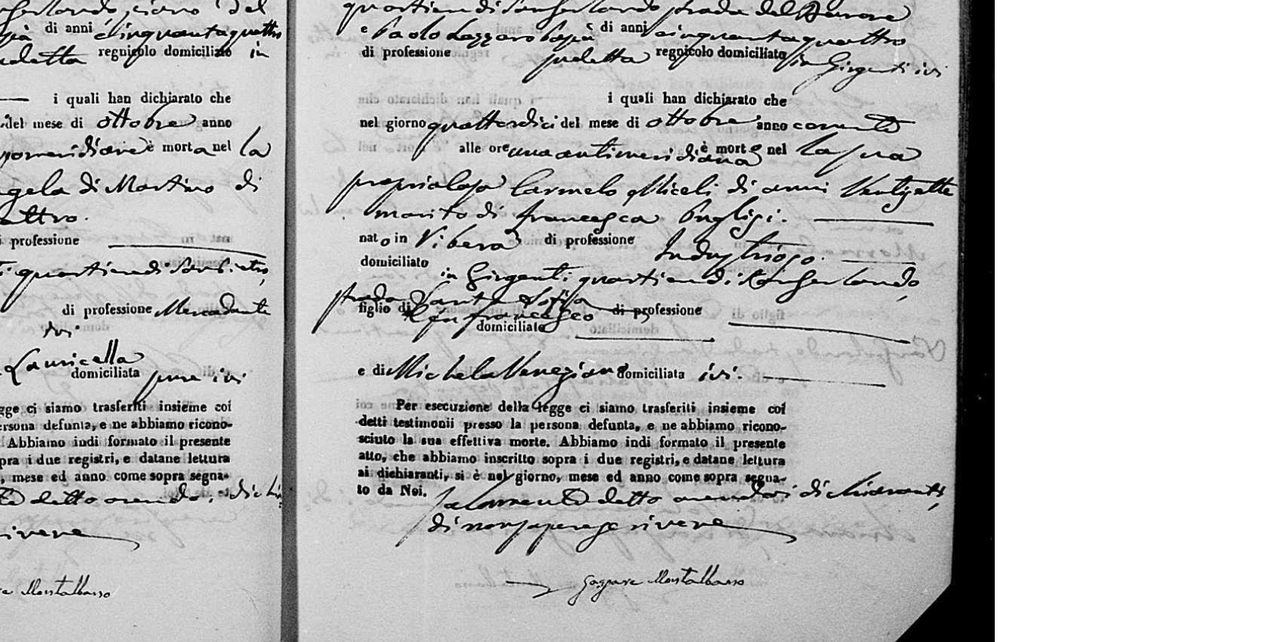 di anni cinquantaquattro
regnicolo domiciliato in
i quali han dichiarato che
del mese di ottobre anno
pomeridiane è morta nel la
Angela di Martino di
professione
quartiere di San Pietro,
di professione Mercadante
ivi
Lauricella
domiciliata pure ivi
legge ci siamo trasferiti insieme coi
persona defunta, e ne abbiamo ricono-
Abbiamo indi formato il presente
sopra i due registri, e datane lettura
, mese ed anno come sopra segna-
detto avendo i dichi
scrivere
Montalbano
quartiere di San Gerlando strada del
e Paolo Lazzaro Papia di anni cinquantaquattro
di professione regnicolo domiciliato in Girgenti ivi
i quali han dichiarato che
nel giorno quattordici del mese di ottobre anno corrente
alle ore una antimeridiana è morto nel la sua
propria casa Carmelo Miceli di anni Ventisette
marito di Francesca Puglisi.
nato in Ribera di professione Industrioso.
domiciliato in Girgenti quartiere di San Gerlando,
strada Santa Sofia
figlio di Gianfrancesco di professione
domiciliato
e di Michela Veneziano domiciliata ivi.
Per esecuzione della legge ci siamo trasferiti insieme coi
detti testimonii presso la persona defunta, e ne abbiamo ricono-
sciuto la sua effettiva morte. Abbiamo indi formato il presente
atto, che abbiamo inscritto sopra i due registri, e datane lettura
ai dichiaranti, si è nel giorno, mese ed anno come sopra segna-
to da Noi, solamente detto avendo i dichiaranti,
di non sapere scrivere
Gaspare Montalbano